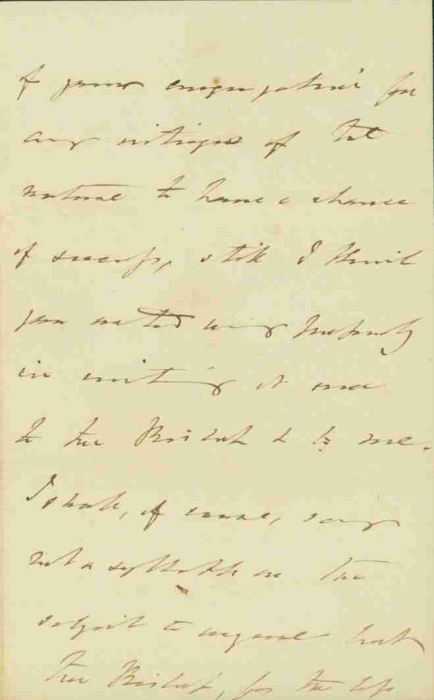 of your congregation for
any critique of that
nature to have a chance
of success, still I think
you acted very properly
in writing at once
to the Bishop & to me.
I shall, of course, say
not a syllable on the
subject to anyone but
the Bishop, for the less